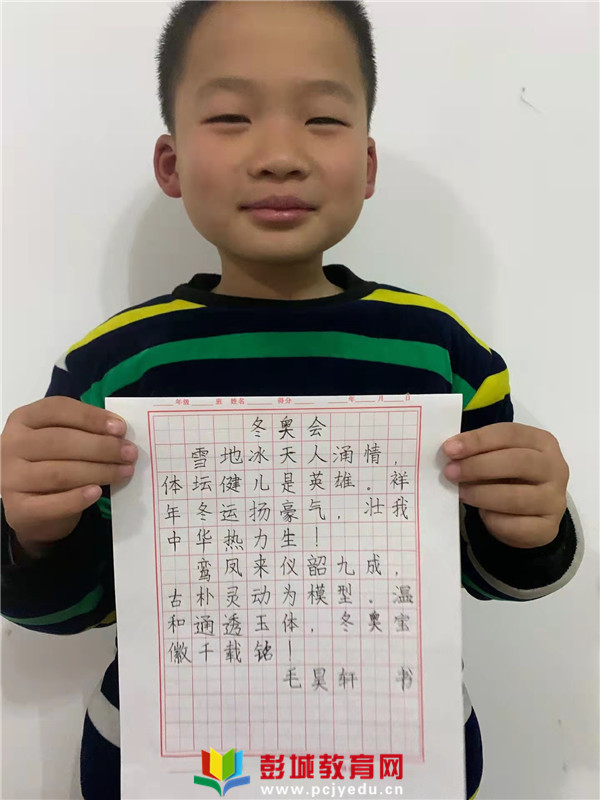 年级 班 姓名 得分 年 月 日
冬奥会
雪地冰天人涌情，
体坛健儿是英雄。祥
年冬运扬豪气，壮我
中华热力生！
鸾凤来仪韶九成，
古朴灵动为模型。温
和通透玉体，冬奥宝
徽千载铭！
毛昊轩 书
彭城教育网
www.pcjyedu.cn